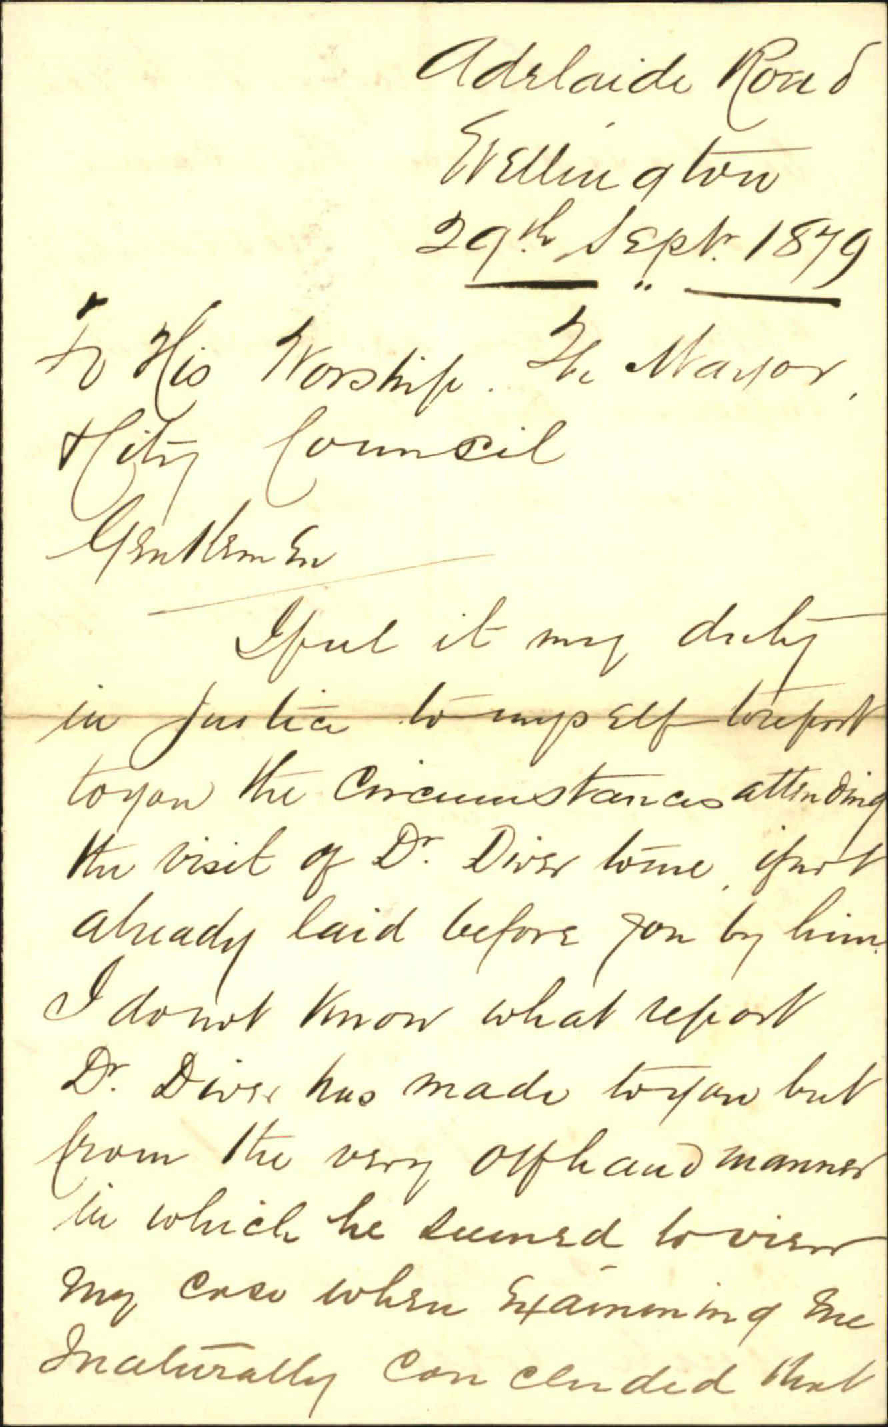 Adelaide Road
Wellington
29th Sept. 1879
To His Worship. The Mayor,
& City Council
Gentlemen
I feel it my duty
in justice to myself to report
to you the circumstances attending
the visit of Dr. Diver to me, if not
already laid before you by him.
I do not know what report
Dr. Diver has made to you but
from the very off hand manner
in which he seemed to view
my case when examining me
I naturally concluded that